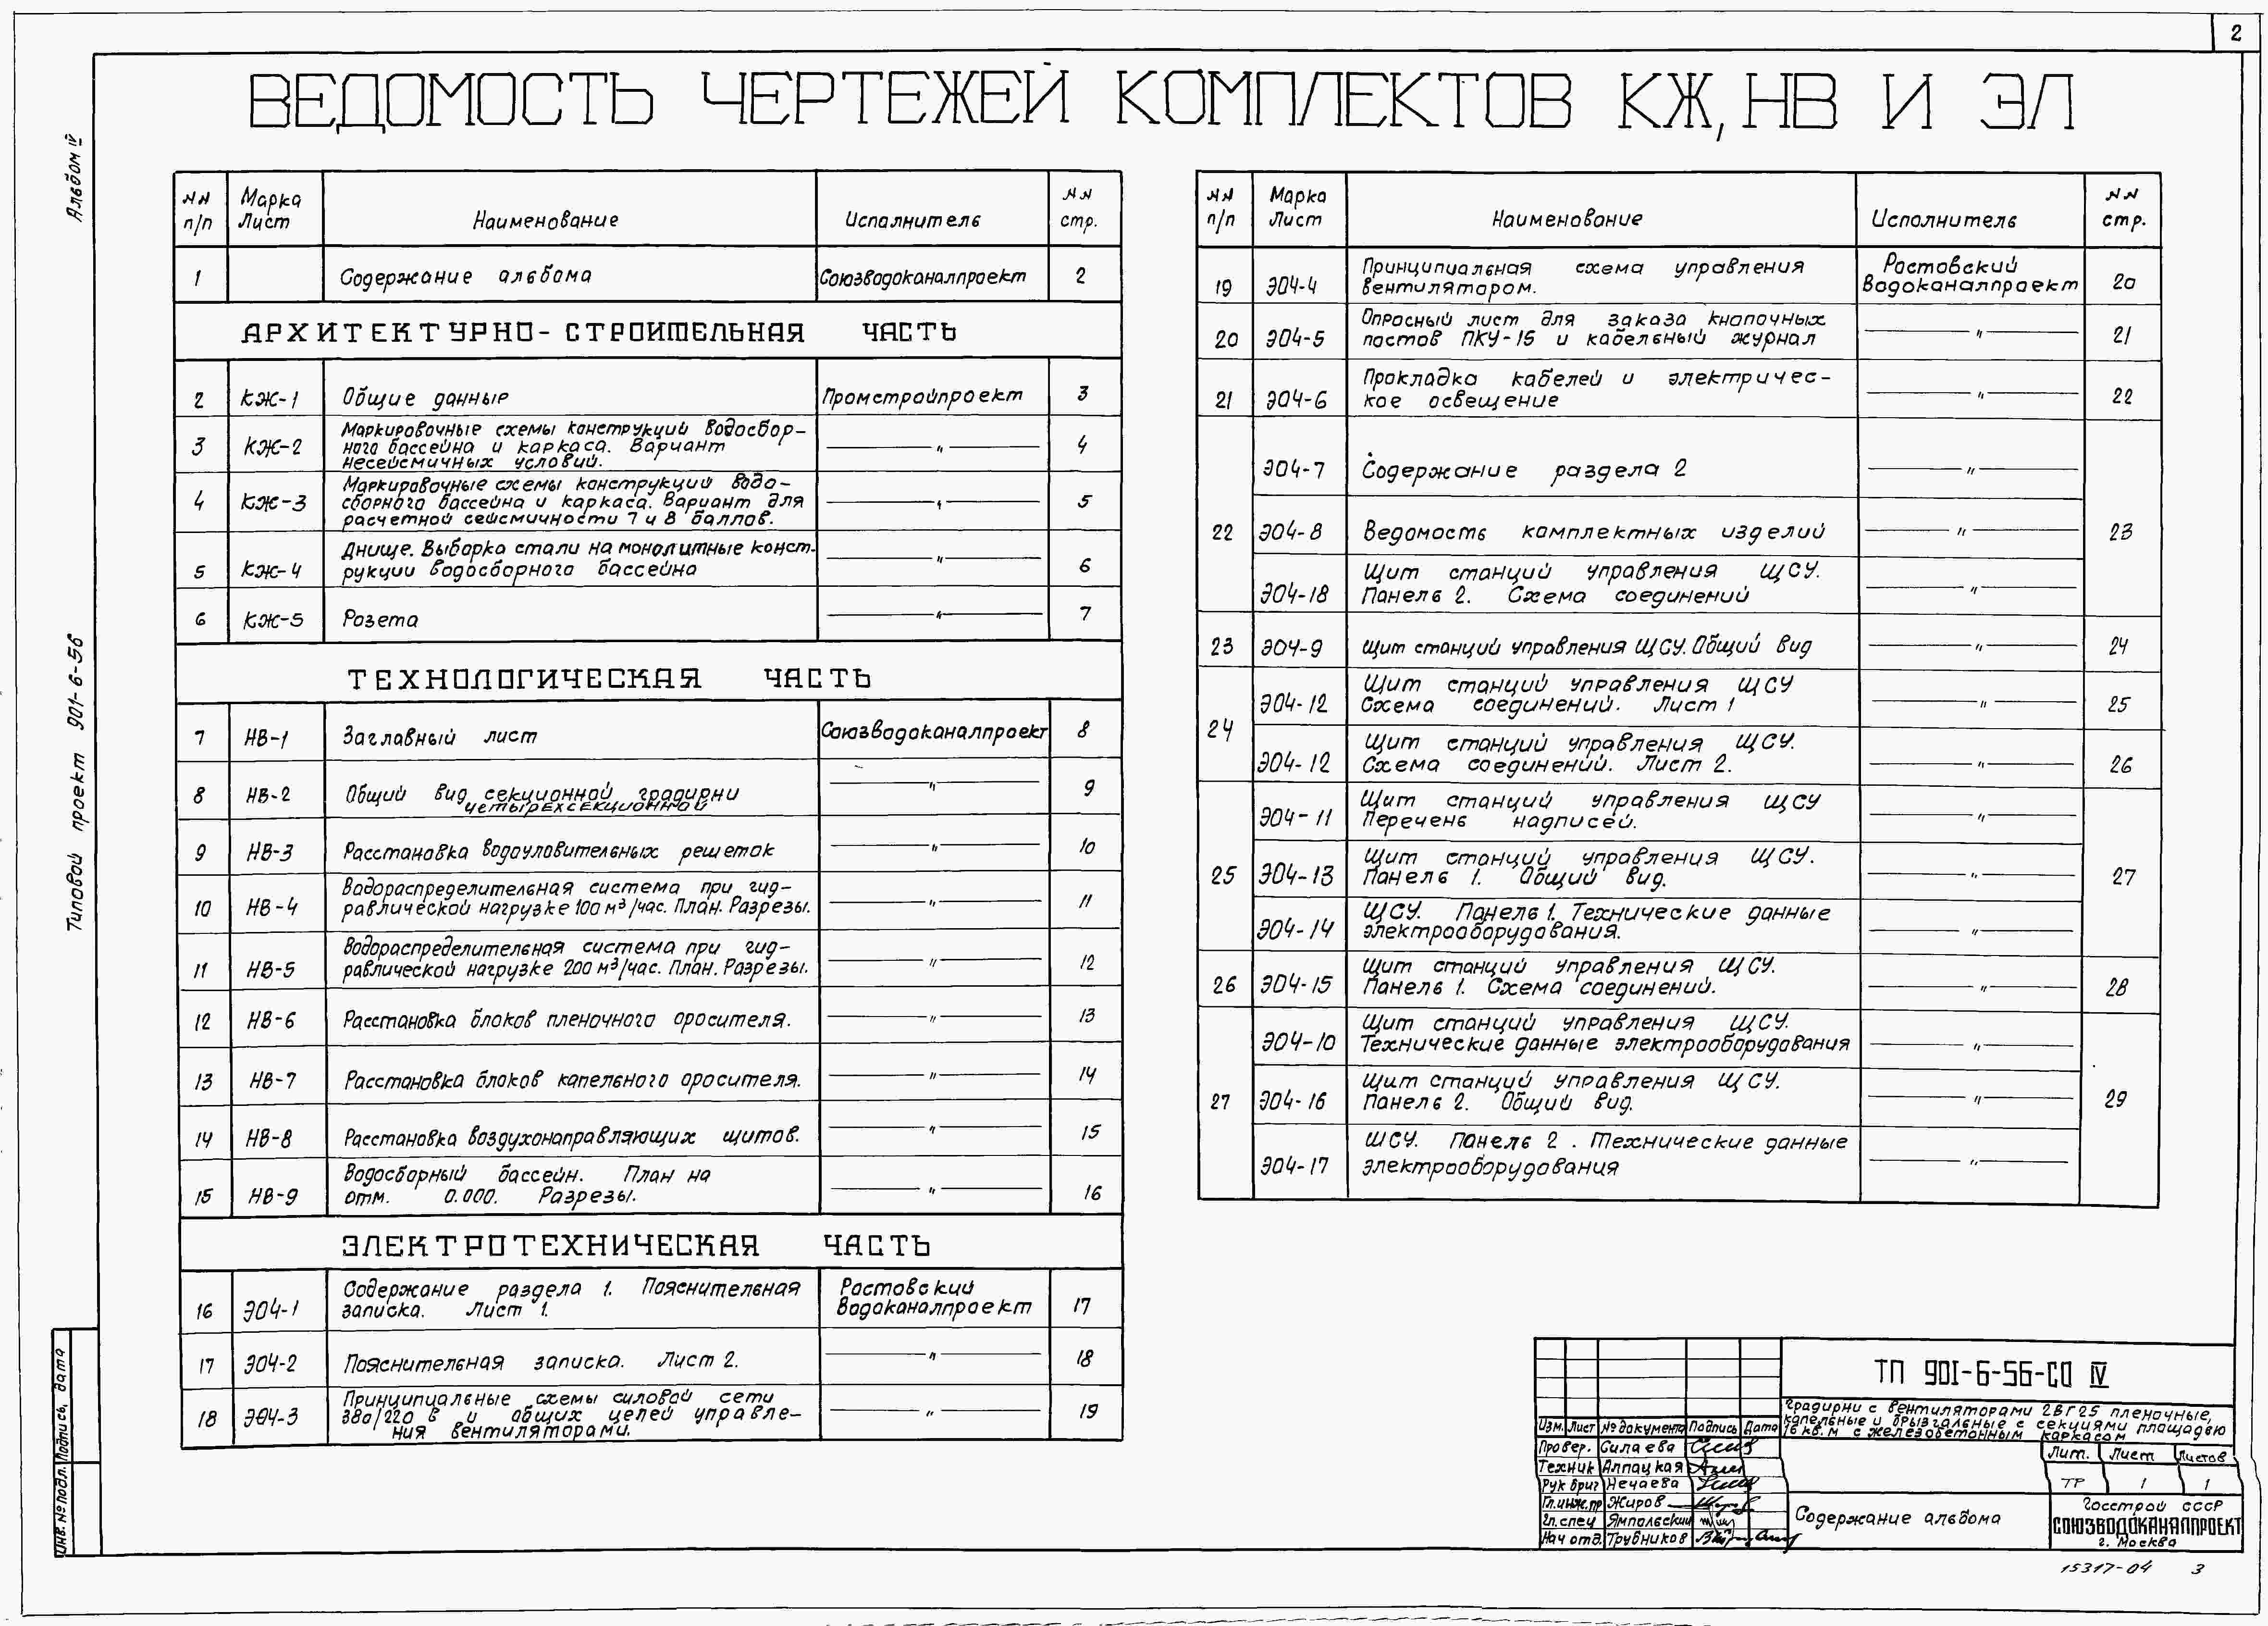 2
ВЕДОМОСТЬ ЧЕРТЕЖЕЙ КОМПЛЕКТОВ КЖ, НВ И ЭЛ
Альбом IV
Типовой проект 901-6-56
Инв. № подл. Подпись, дата
NN п/п Марка Лист Наименование Исполнитель NN стр.
1 Содержание альбома Союзводоканалпроект 2
АРХИТЕКТУРНО-СТРОИТЕЛЬНАЯ ЧАСТЬ
2 КЖ-1 Общие данные Промстройпроект 3
Маркировочные схемы конструкций водосбор-
3 КЖ-2 ного бассейна и каркаса. Вариант —"— 4
несейсмичных условий.
Маркировочные схемы конструкций водо-
4 КЖ-3 сборного бассейна и каркаса. Вариант для —"— 5
расчетной сейсмичности 7 и 8 баллов.
Днище. Выборка стали на монолитные конст-
5 КЖ-4 рукции водосборного бассейна —"— 6
6 КЖ-5 Розета —"— 7
ТЕХНОЛОГИЧЕСКАЯ ЧАСТЬ
7 НВ-1 Заглавный лист Союзводоканалпроект 8
8 НВ-2 Общий вид секционной градирни —"— 9
четырехсекционной
9 НВ-3 Расстановка водоуловительных решеток —"— 10
Водораспределительная система при гид-
10 НВ-4 равлической нагрузке 100 м³/час. План. Разрезы. —"— 11
Водораспределительная система при гид-
11 НВ-5 равлической нагрузке 200 м³/час. План. Разрезы. —"— 12
12 НВ-6 Расстановка блоков пленочного оросителя. —"— 13
13 НВ-7 Расстановка блоков капельного оросителя. —"— 14
14 НВ-8 Расстановка воздухонаправляющих щитов. —"— 15
Водосборный бассейн. План на
15 НВ-9 отм. 0.000. Разрезы. —"— 16
ЭЛЕКТРОТЕХНИЧЕСКАЯ ЧАСТЬ
Содержание раздела 1. Пояснительная Ростовский
16 Э04-1 записка. Лист 1. Водоканалпроект 17
17 Э04-2 Пояснительная записка. Лист 2. —"— 18
Принципиальные схемы силовой сети
18 Э04-3 380/220 в и общих цепей управле- —"— 19
ния вентиляторами.
NN п/п Марка Лист Наименование Исполнитель NN стр.
Принципиальная схема управления Ростовский
19 Э04-4 вентилятором. Водоканалпроект 20
Опросный лист для заказа кнопочных
20 Э04-5 постов ПКУ-15 и кабельный журнал —"— 21
Прокладка кабелей и электричес-
21 Э04-6 кое освещение —"— 22
Э04-7 Содержание раздела 2 —"—
22 Э04-8 Ведомость комплектных изделий —"— 23
Щит станций управления ЩСУ.
Э04-18 Панель 2. Схема соединений —"—
23 Э04-9 Щит станций управления ЩСУ. Общий вид —"— 24
Щит станций управления ЩСУ
24 Э04-12 Схема соединений. Лист 1 —"— 25
Щит станций управления ЩСУ.
Э04-12 Схема соединений. Лист 2. —"— 26
Щит станций управления ЩСУ
Э04-11 Перечень надписей. —"—
Щит станций управления ЩСУ.
25 Э04-13 Панель 1. Общий вид. —"— 27
ЩСУ. Панель 1. Технические данные
Э04-14 электрооборудования. —"—
Щит станций управления ЩСУ.
26 Э04-15 Панель 1. Схема соединений. —"— 28
Щит станций управления ЩСУ.
Э04-10 Технические данные электрооборудования —"—
Щит станций управления ЩСУ.
27 Э04-16 Панель 2. Общий вид. —"— 29
ШСУ. Панель 2. Технические данные
Э04-17 электрооборудования —"—
ТП 901-6-56-СО IV
Градирни с вентиляторами 2ВГ25 пленочные,
капельные и брызгальные с секциями площадью
16 кв.м с железобетонным каркасом
Изм. Лист № документа Подпись Дата
Провер. Силаева
Техник Алпацкая
Рук бриг Нечаева
Гл.инж.пр Жиров
Гл.спец Ямпольский
Нач отд. Трубников
Лит. Лист Листов
ТР 1 1
Содержание альбома
Госстрой СССР
СОЮЗВОДОКАНАЛПРОЕКТ
г. Москва
15317-04 3